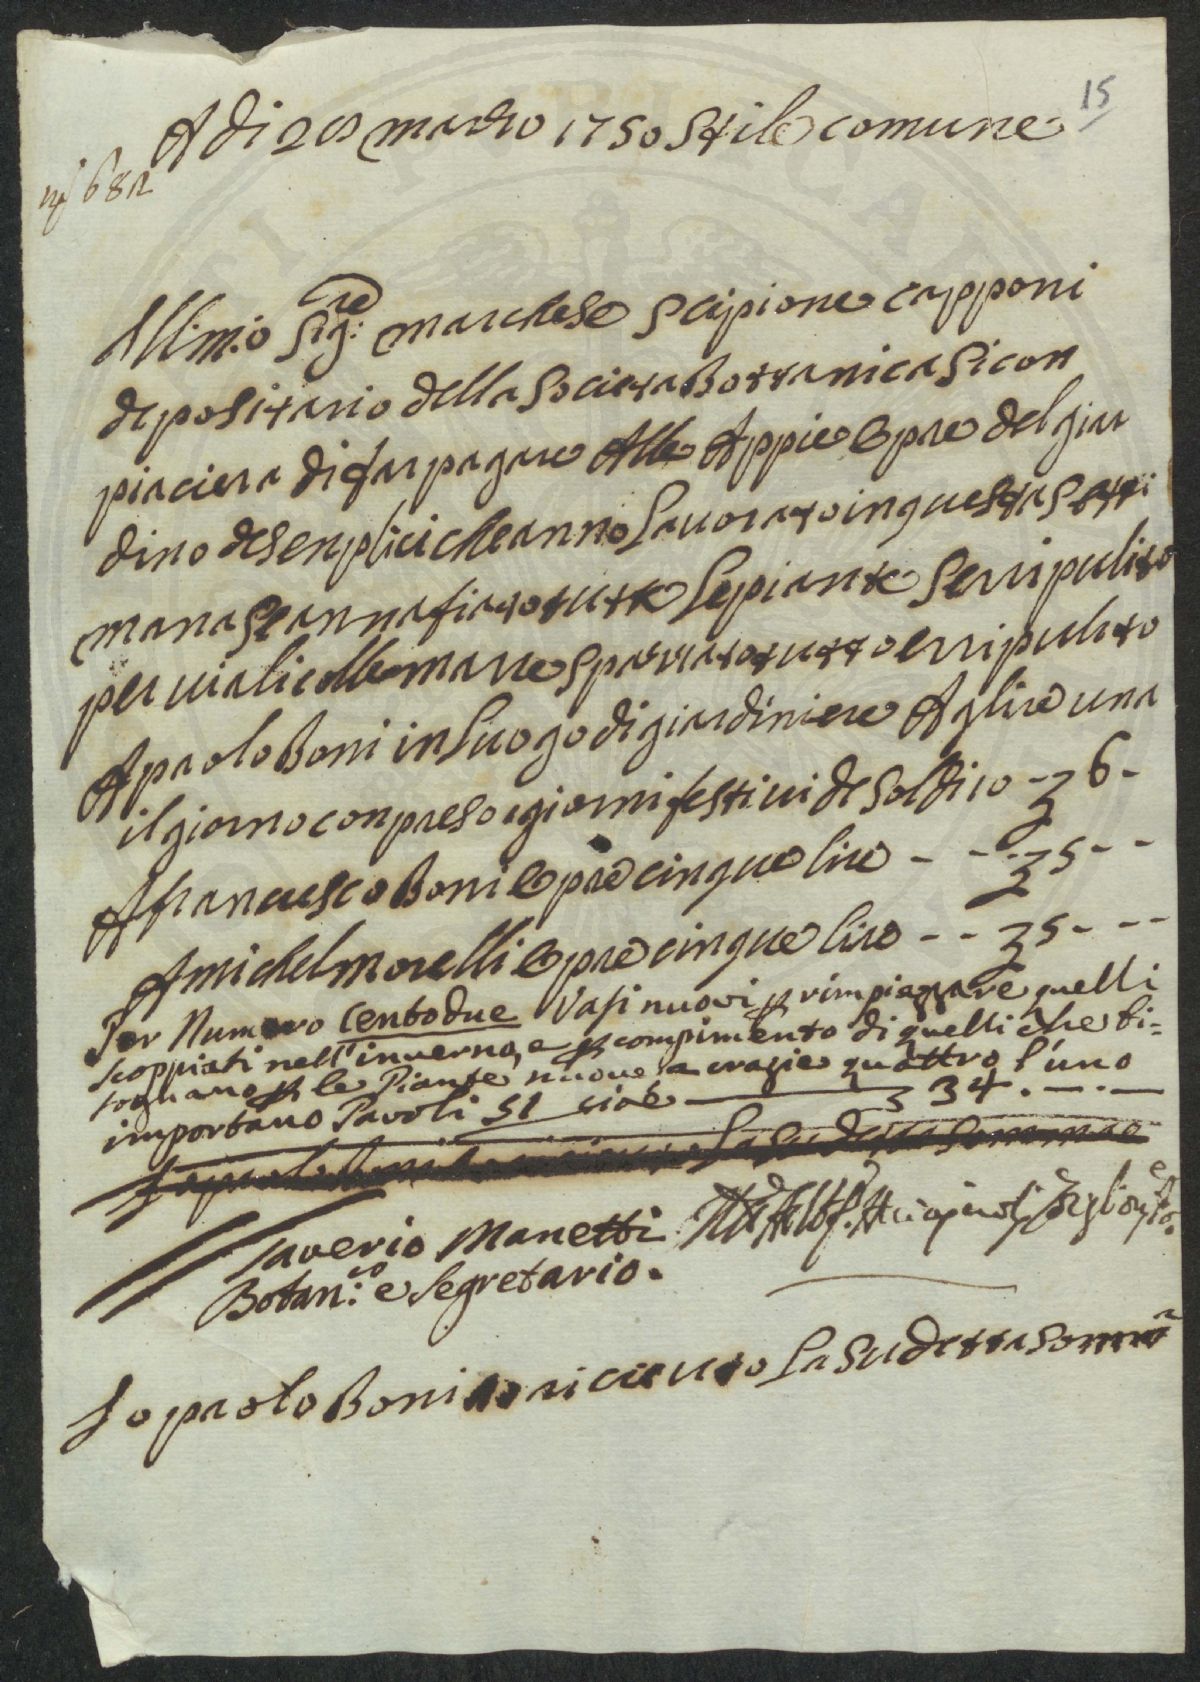 15
A di 28 marzo 1750 stile comune
682
Allim:o Sig:re marchese scipione capponi
depositario della Societa Bottanica Si con
piaciera di far pagare Alle Appie Opre del giar
dino de senplici che anno Lauorato in questa Setti
mana Se annafiato tutte Le piante Se rripulito
per uiali colle marre spazzato tutto e rripulito
A paolo Boni in Luogo di giardiniere A glire una
il giorno conpreso i giorni festiui de soldi 10 - 6 -
A francescho Boni Opre cinque lire - - - 5 - -
A michel morelli Opre cinque lire - - 5 - - -
Per Numero Centodue Vasi nuovi p rimpiazzare quelli
scoppiati nell'inverno, e p compimento di quelli che bi=
sognano p le Piante nuove a crazie quattro l'uno
importano Pavoli 51 cioè 34
Io paolo Boni o riceuuto La Sudetta Somma
Saverio Manetti
Botan:co e Segretario.
Io paolo Boni o riceuuto La Sudetta Somma